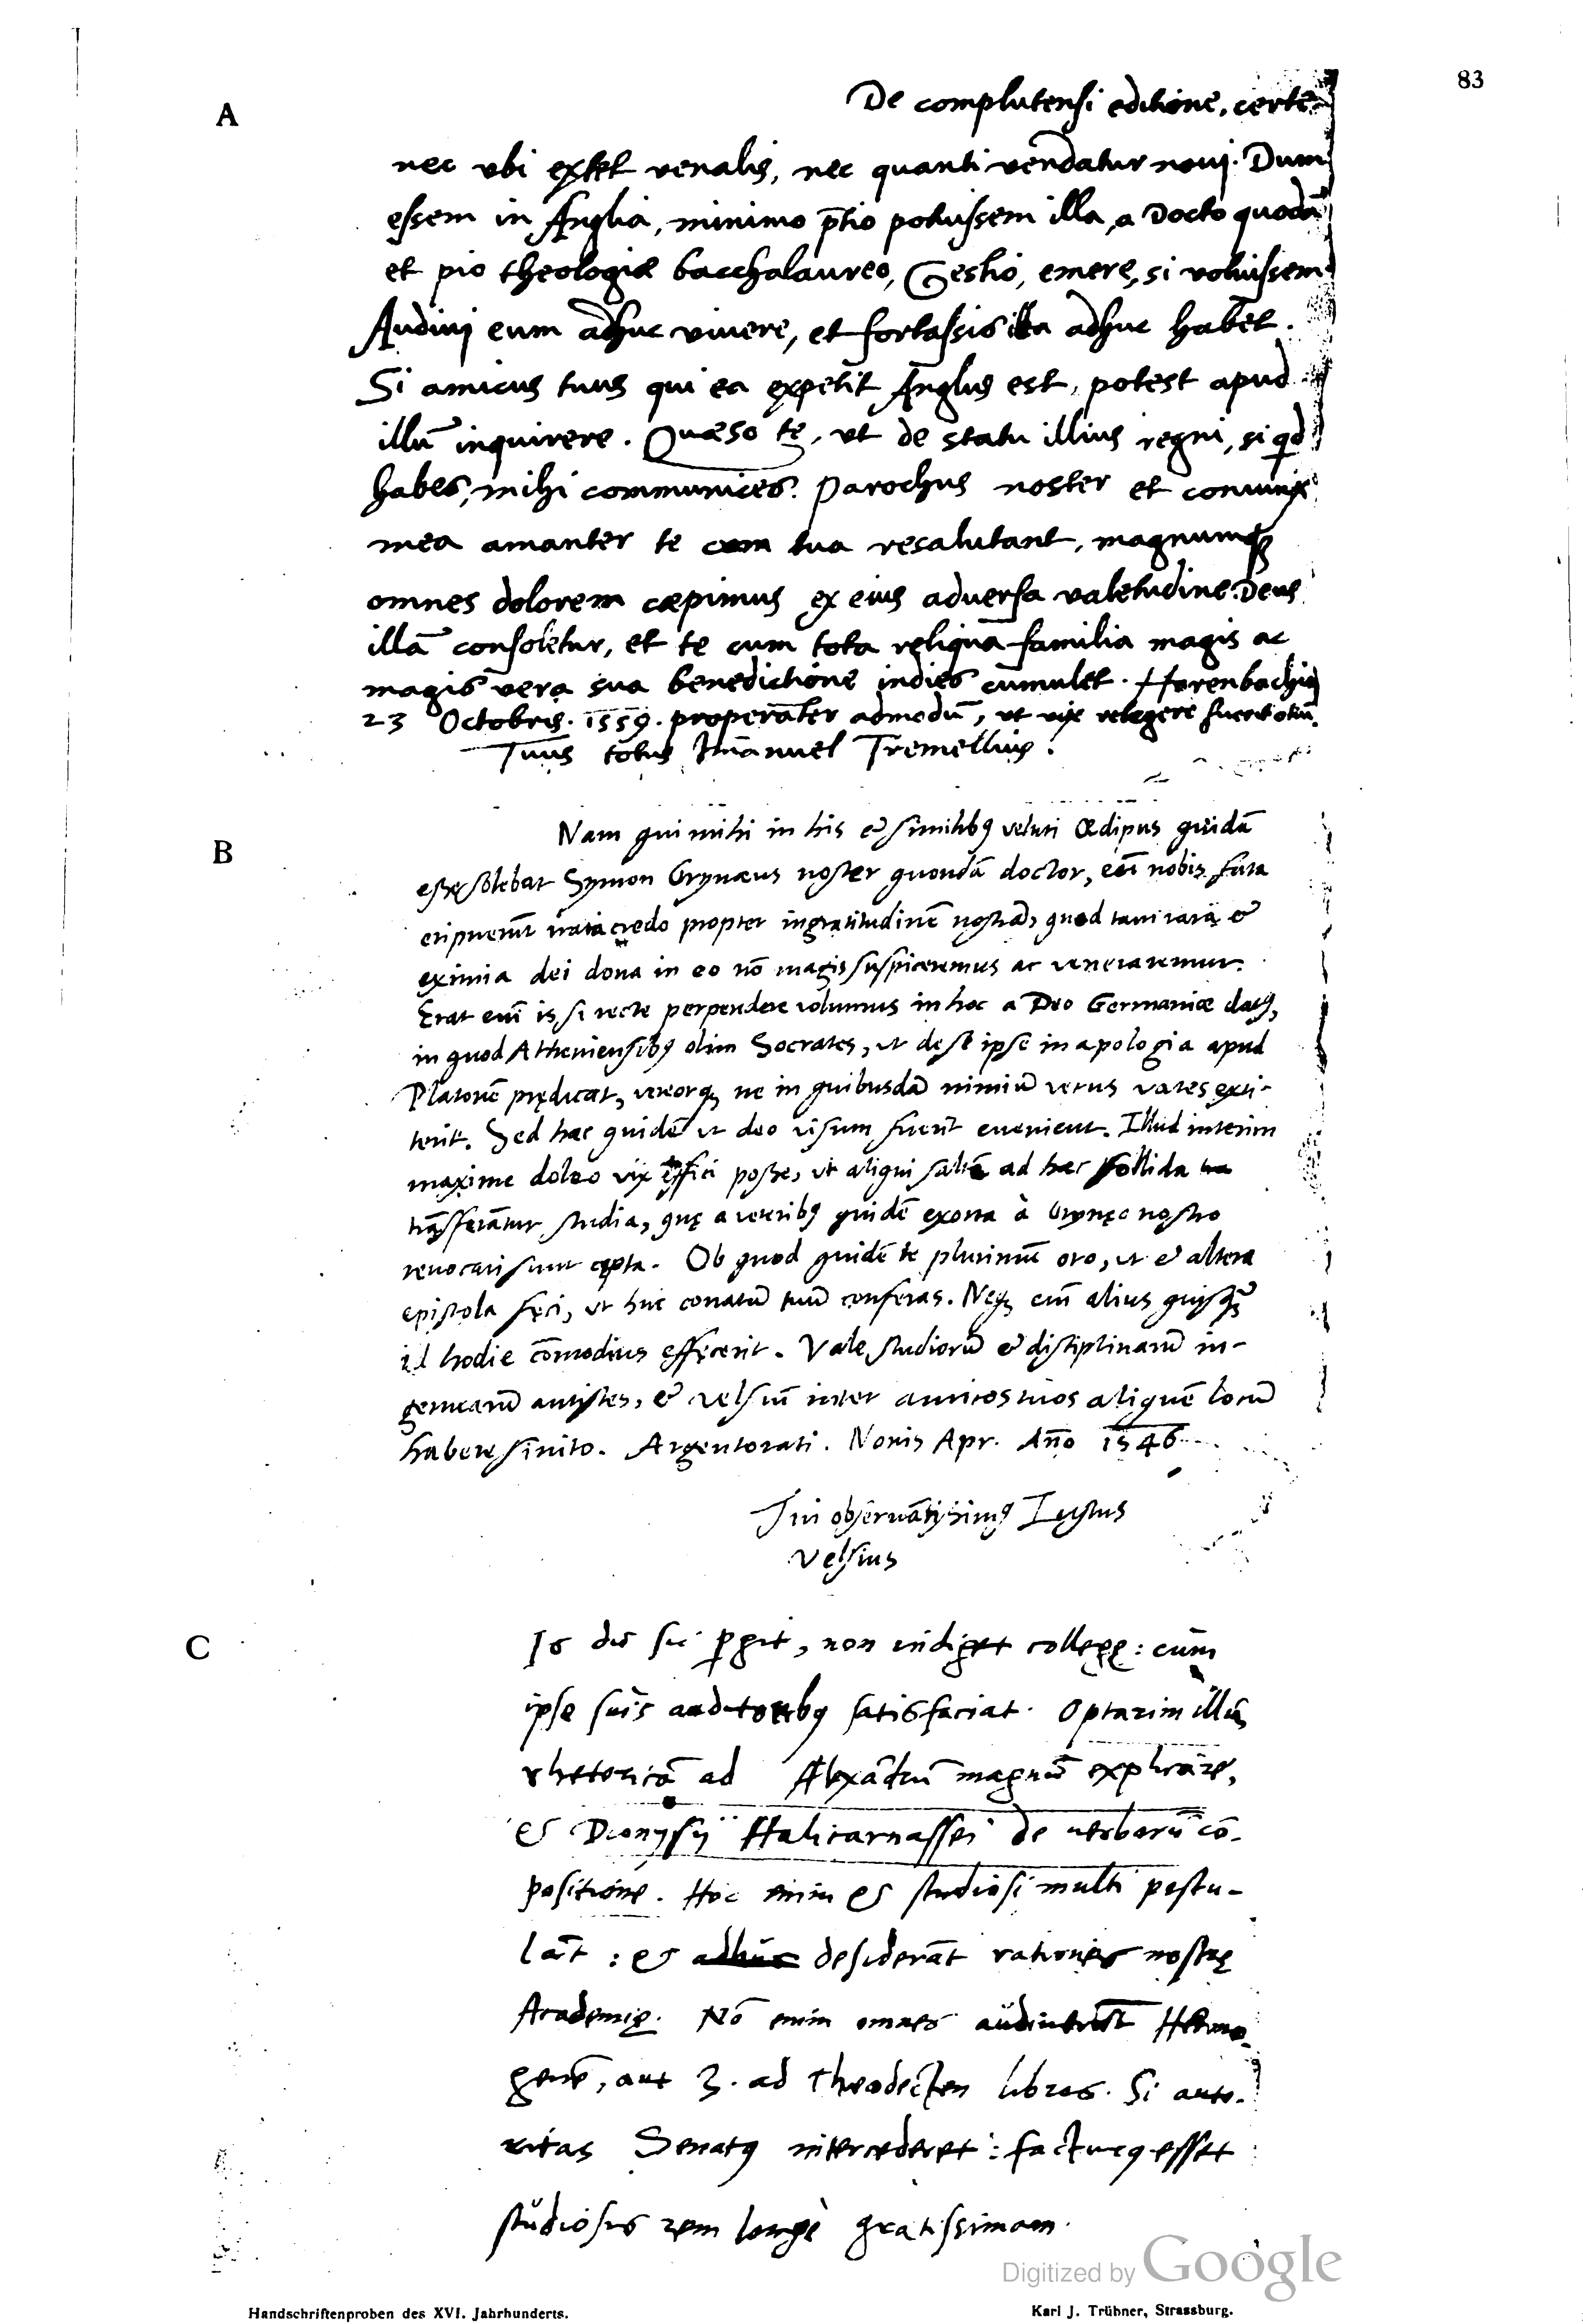 83
A
De complutensi editione, certe
nec vbi extet venalis, nec quanti vendatur noui. Dum
essem in Anglia, minimo p̄tio potuissem illa, a Docto quodā
et pio theologiæ bacchalaureo, Gestio, emere, si voluissem.
Audiui eum adhuc viuere, et fortassis illa adhuc habet.
Si amicus tuus qui ea expetit Anglus est, potest apud
illū inquirere. Quæso te, vt de statu illius regni, si qd
habes, mihi communices. Parochus noster et coniunx
mea amanter te cum tua resalutant, magnumq;
omnes dolorem cæpimus ex eius aduersa valetudine. Deus
illā consoletur, et te cum tota reliqua familia magis ac
magis vera sua benedictione indies cumulet. Horenbachij
23 Octobris. 1559. properanter admodū, vt vix relegere fuerit otiū.
Tuus totus Imanuel Tremellius.
B
Nam qui mihi in his & similibꝰ veluti Œdipus quidā
esse solebat Symon Grynæus noster quondā doctor, eū nobis fata
eripuerūt credo propter ingratitudinē nostrā, quod tam rara &
eximia dei dona in eo nō magis suspiceremus ac veneraremur.
Erat enī is, si recte perpendere volumus in hoc a Deo Germaniæ datꝰ,
in quod Atheniensibꝰ olim Socrates, vt de se ipse in apologia apud
Platonē prędicat, vereorq; ne in quibusdā nimiū verus vates exti-
terit. Sed hæc quidē vt deo visum fuerit euenient. Illud interim
maxime doleo vix effici posse, vt aliqui saltē ad hæc
trāsferātur studia, quę a veteribꝰ quidē exorta à Grynęo nostro
reuocari sunt cępta. Ob quod quidē te plurimū oro, vt & altera
epistola feci, vt huc conatū tuū conferas. Neq; enī alius quisquā
id hodie cōmodius effecerit. Vale, studiorū & disciplinarū in-
genuarū antistes, & velsiū inter amicos tuos aliquē locū
habere sinito. Argentorati. Nonis Apr. Año 1546
Tui obseruātissimꝰ Iustus
Velsius
C
Is dū sic p̱git, non indiget collegę: cum
ipse suis auditoribꝰ satisfaciat. Optarim illū
rhetoricā ad Alexādrū magnū explicare,
& Dionysij Halicarnassei de verborū cō-
positione. Hoc enim & studiosi multi postu-
lāt : & adhuc desiderāt rationes nostrę
Academię. Nō enim omnes audiuerūt Hermo-
genē, aut 3. ad Theodecten libros. Si auto-
ritas Senatꝰ intercederet : facturꝰ esset
studiosis rem longè gratissimam.
Digitized by Google
Handschriftenproben des XVI. Jahrhunderts.
Karl J. Trübner, Strassburg.